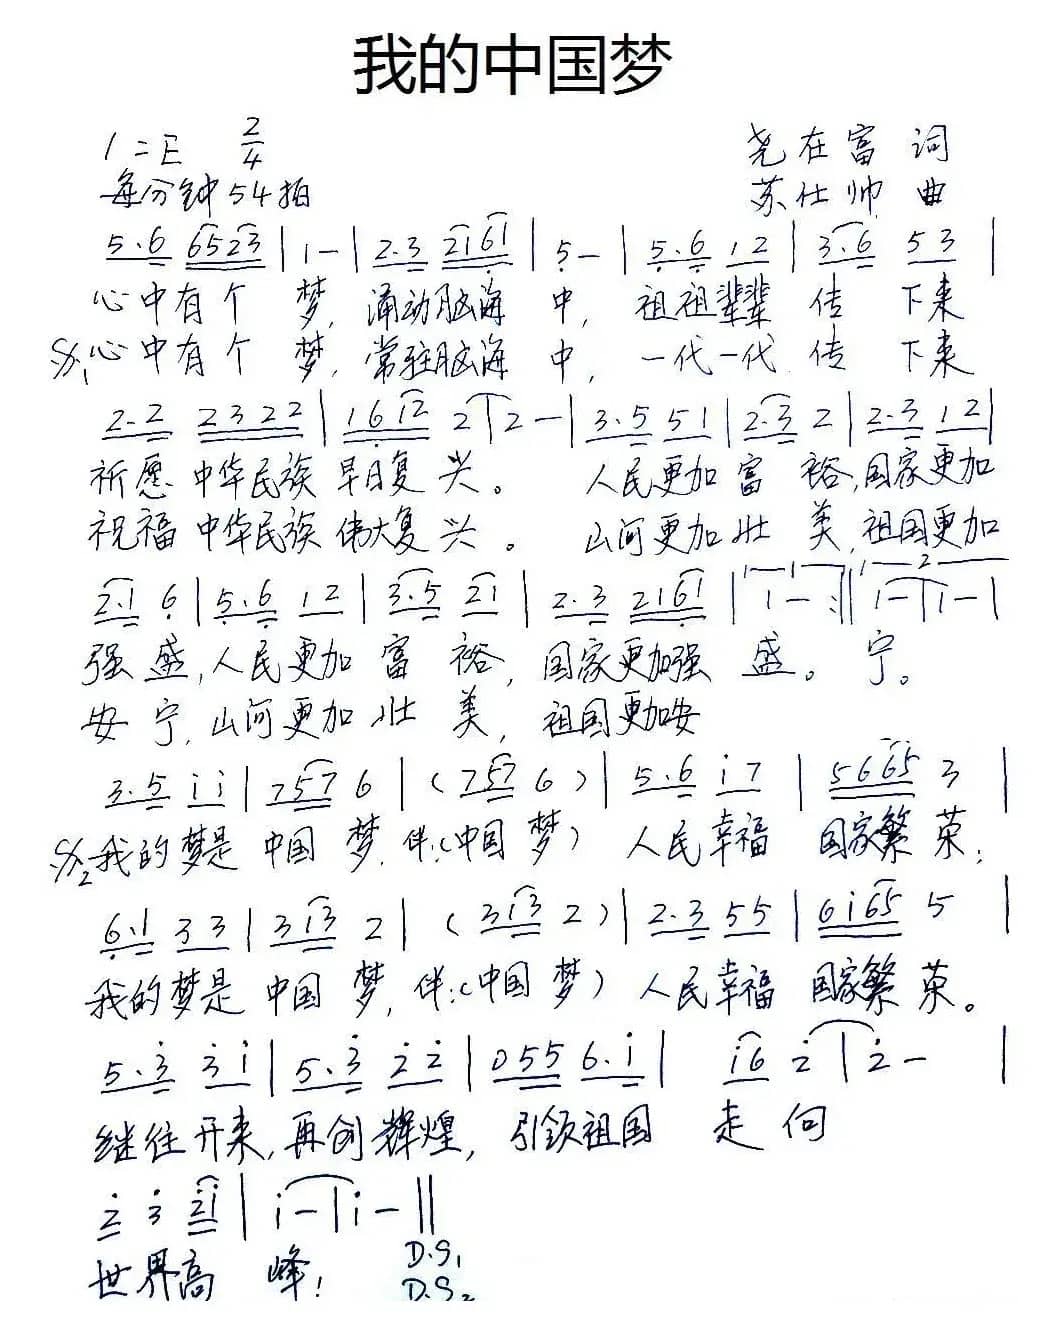 我的中国梦
1=E 2/4
尧在富 词
每分钟54拍
苏仕帅 曲
5.6 6523 | 1 - | 2.3 2161 | 5 - | 5.6 12 | 3.6 53 |
心中有个 梦, 涌动脑海 中, 祖祖辈辈 传 下来
S1 心中有个 梦, 常驻脑海 中, 一代一代 传 下来
2.2 2322 | 1612 2 | 2 - | 3.5 51 | 2.3 2 | 2.3 12 |
祈愿 中华民族 早日复兴。 人民更加富 裕,国家更加
祝福 中华民族 伟大复兴。 山河更加壮 美,祖国更加
2.1 6 | 5.6 12 | 3.5 21 | 2.3 2161 | 1 1 - :|| 2 1 - | 1 - |
强 盛,人民更加 富 裕, 国家更加强 盛。 宁。
安 宁,山河更加壮 美, 祖国更加安
3.5 i i | 757 6 | (757 6) | 5.6 i7 | 5665 3 |
S2 我的梦是 中国 梦, 伴:(中国 梦) 人民幸福 国家繁 荣;
6.1 33 | 313 2 | (313 2) | 2.3 55 | 6i65 5 |
我的梦是 中国 梦, 伴:(中国 梦) 人民幸福 国家繁 荣。
5.3 3i | 5.3 22 | 055 6.i | i6 2 | 2 - |
继往开来,再创辉煌, 引领祖国 走向
2 3 2i | i - | i - ||
世界高 峰! D.S1
D.S2